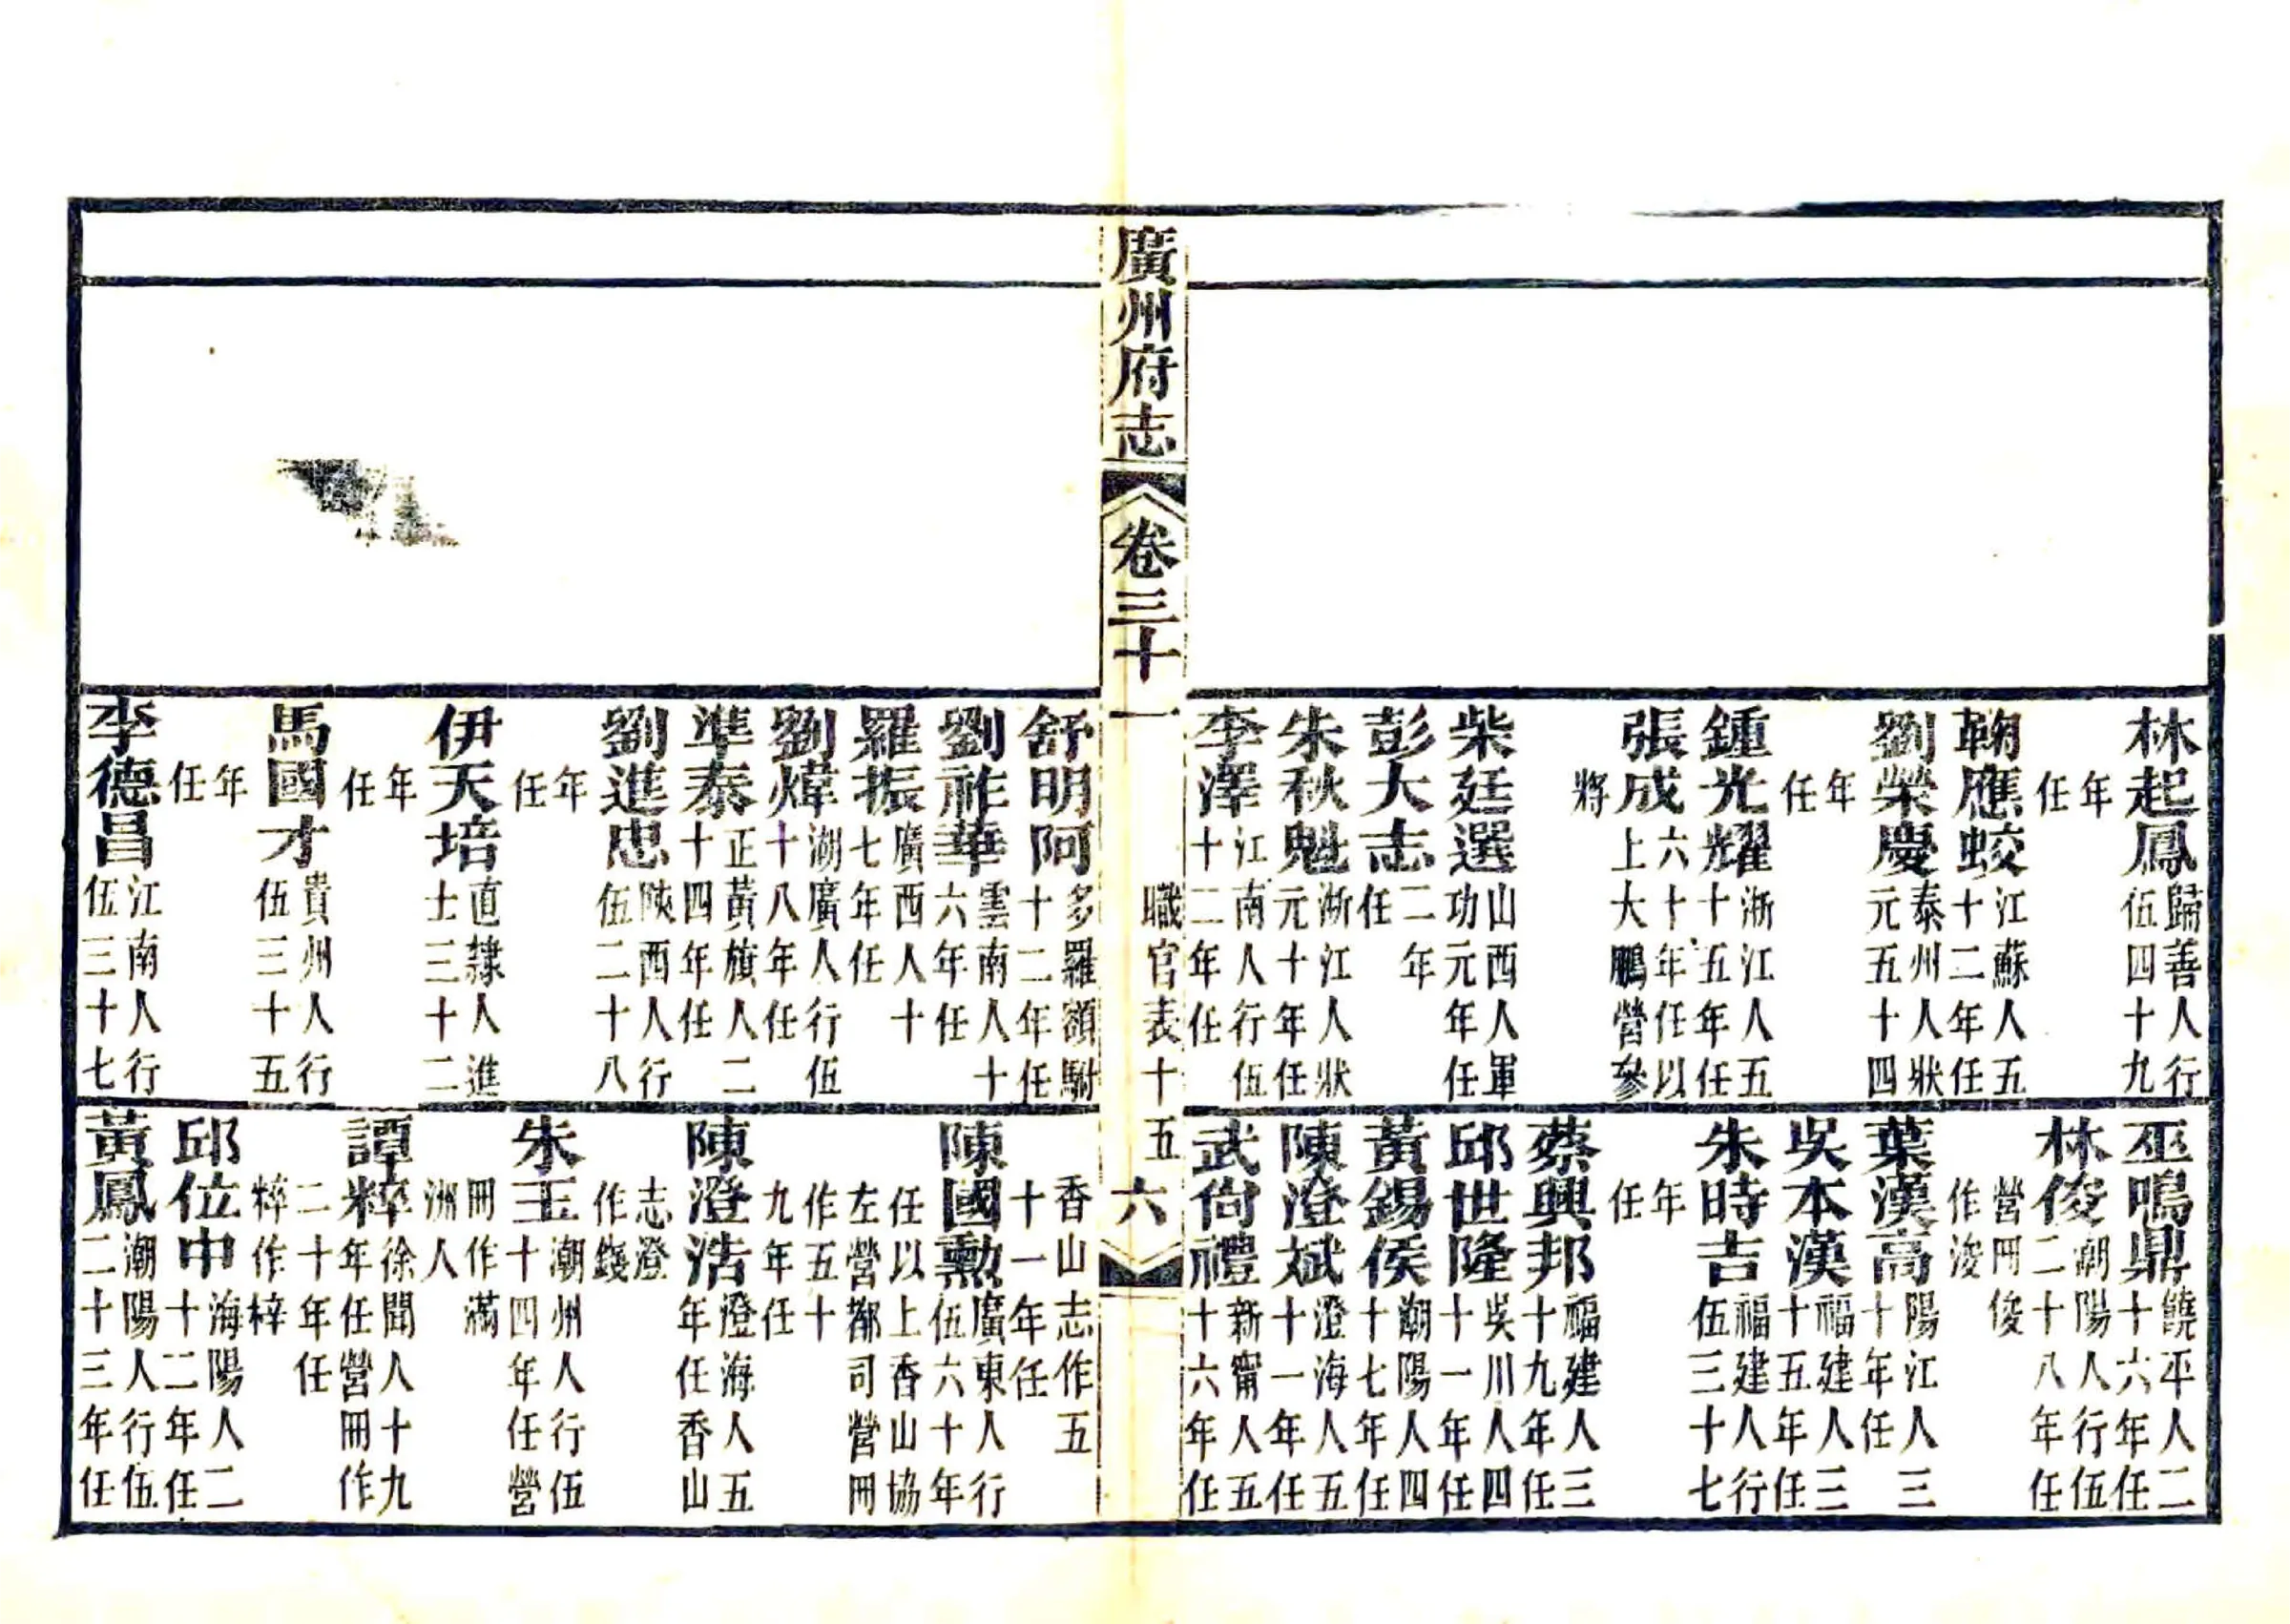 林起鳳歸善人行伍四十九
年任
鞠應蛟江蘇人五十二年任
劉榮慶泰州人狀元五十四
年任
鍾光耀浙江人五十五年任
張成六十年任以上大鵬營參
將
柴廷選山西人軍功元年任
彭大志二年任
朱秋魁浙江人狀元十年任
李澤江南人行伍十二年任
巫鳴鼎饒平人二十六年任
林俊潮陽人行伍二十八年任
營冊俊作浚
葉漢高陽江人三十年任
吳本漢福建人三十五年任
朱時吉福建人行伍三十七
年任
蔡興邦福建人三十九年任
邱世隆吳川人四十一年任
黃錫侯潮陽人四十七年任
陳澄斌澄海人五十一年任
武尙禮新甯人五十六年任
廣州府志 卷三十一 職官表十五 六
舒明阿多羅額駙十二年任
劉祚華雲南人十六年任
羅振廣西人十七年任
劉煒湖廣人行伍十八年任
準泰正黃旗人二十四年任
劉進忠陝西人行伍二十八
年任
伊天培直隸人進士三十二
年任
馬國才貴州人行伍三十五
年任
李德昌江南人行伍三十七
香山志作五十一年任
陳國勳廣東人行伍六十年
任以上香山協左營都司營冊
作五十九年任
陳澄浩澄海人五年任香山
志澄作錢
朱玉潮州人行伍十四年任營
冊作滿洲人
譚粹徐聞人十九年任營冊作
二十年任粹作梓
邱位中海陽人二十二年任
黃鳳潮陽人行伍二十三年任